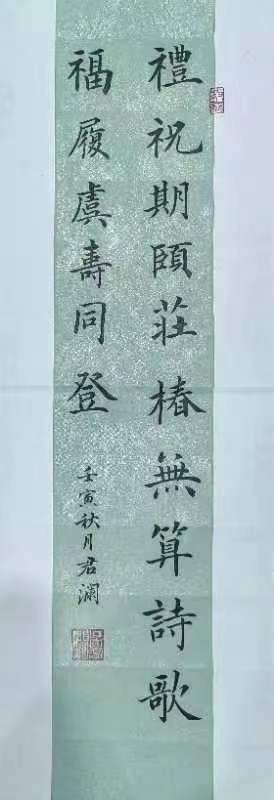 禮祝期頤莊椿無算詩歌
福履虞壽同登
壬寅秋月君澜